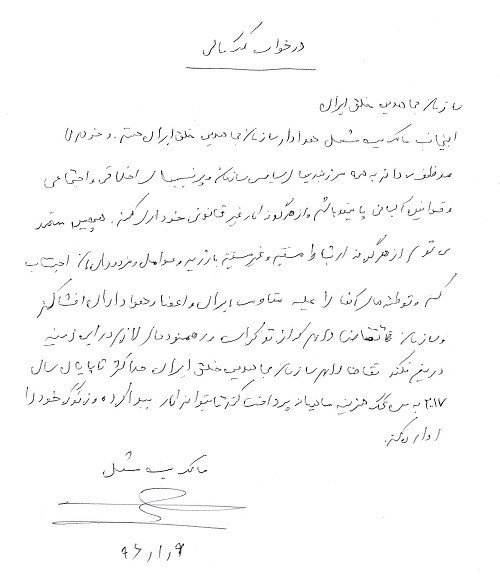 درخواست کمک مالی
سازمان مجاهدین خلق ایران
اینجانب مالک بیت مشعل هوادار سازمان مجاهدین خلق ایران هستم. و خود را
موظف میدانم به همه مرزبندیهای سیاسی سازمان و پرنسیبهای اخلاقی و اجتماعی
و قوانین آلبانی پایبند باشم و از هرگونه کار غیرقانونی خودداری کنم. همچنین متعهد
می شوم از هرگونه ارتباط مستقیم و غیر مستقیم با رژیم و عوامل و مزدورانش اجتناب
کنم و توطئه های آنها را علیه مقاومت ایران و اعضا و هواداران افشا کنم
و سازمان تقاضا دارم که از تذکرات و رهنمودهای لازم در این زمینه
دریغ نکند تقاضا دارم سازمان مجاهدین خلق ایران حداکثر تا پایان سال
۲۰۱۷ به من کمک هزینه ماهیانه پرداخت کند تا بتوانم کار پیدا کرده و زندگی خود را
اداره کنم.
مالک بیت مشعل